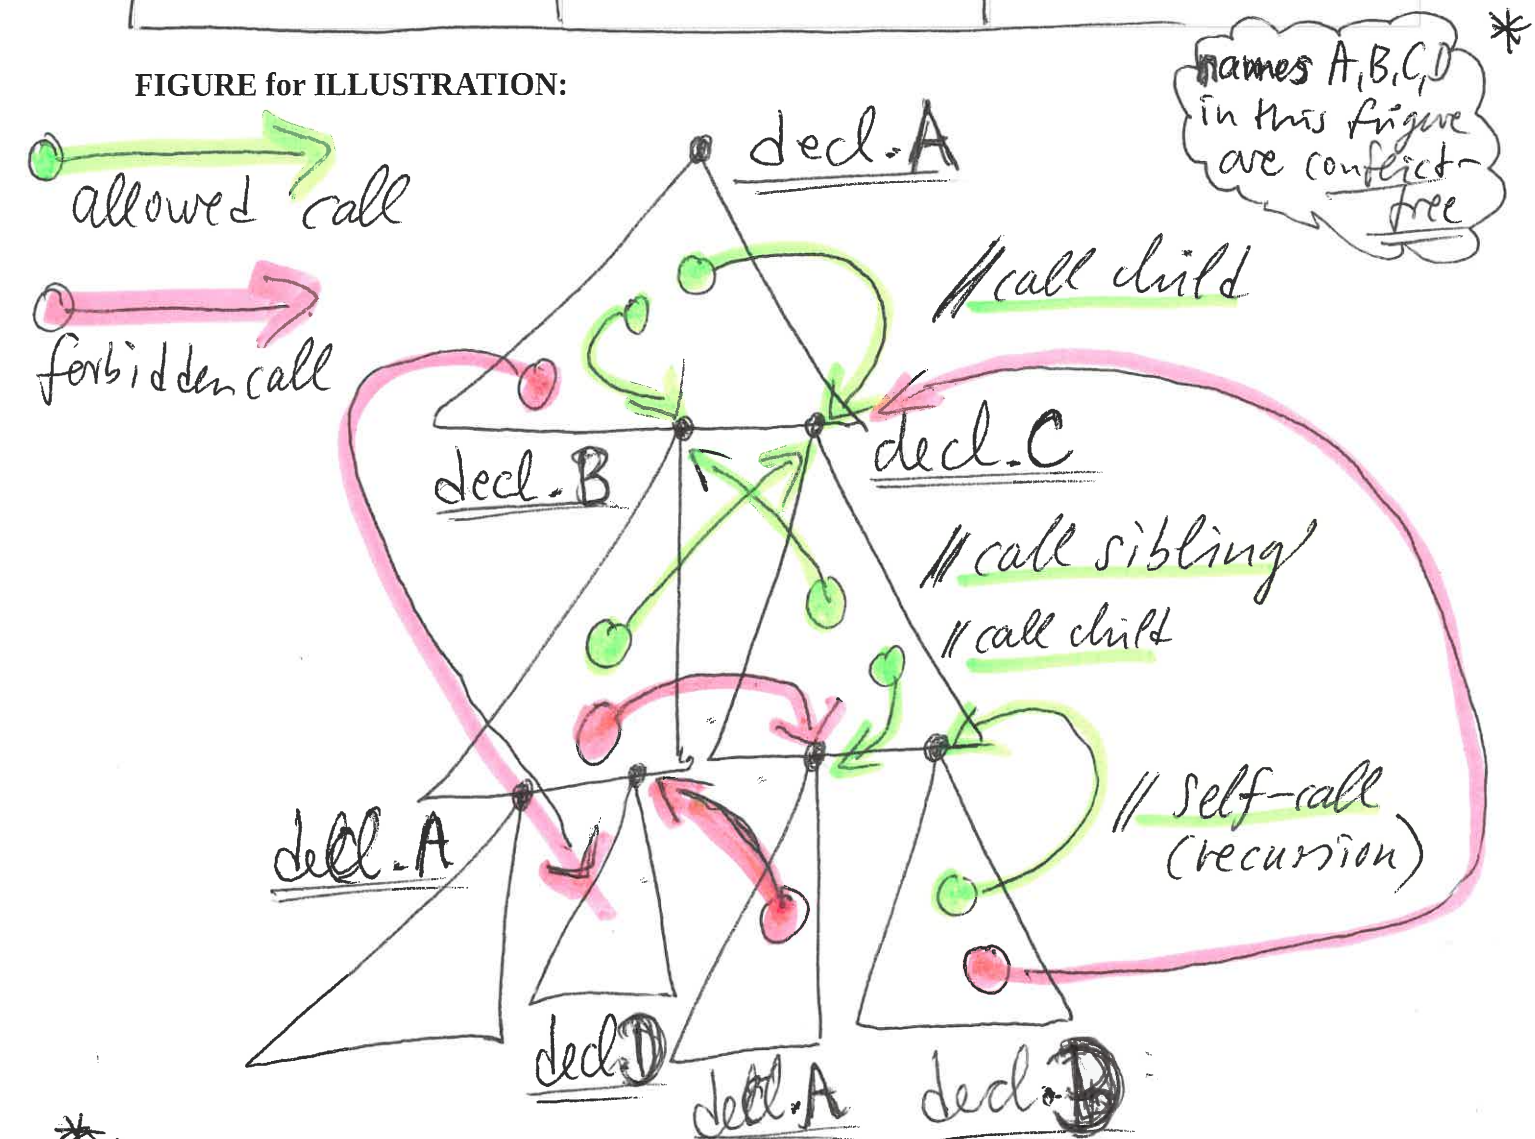 FIGURE for ILLUSTRATION:
names A,B,C,D
in this figure
are conflict-
free
allowed call
decl.A
// call child
forbidden call
decl.B
decl.C
/// call sibling
// call child
// self-call
(recursion)
decl.A
decl.D
decl.A
decl.D